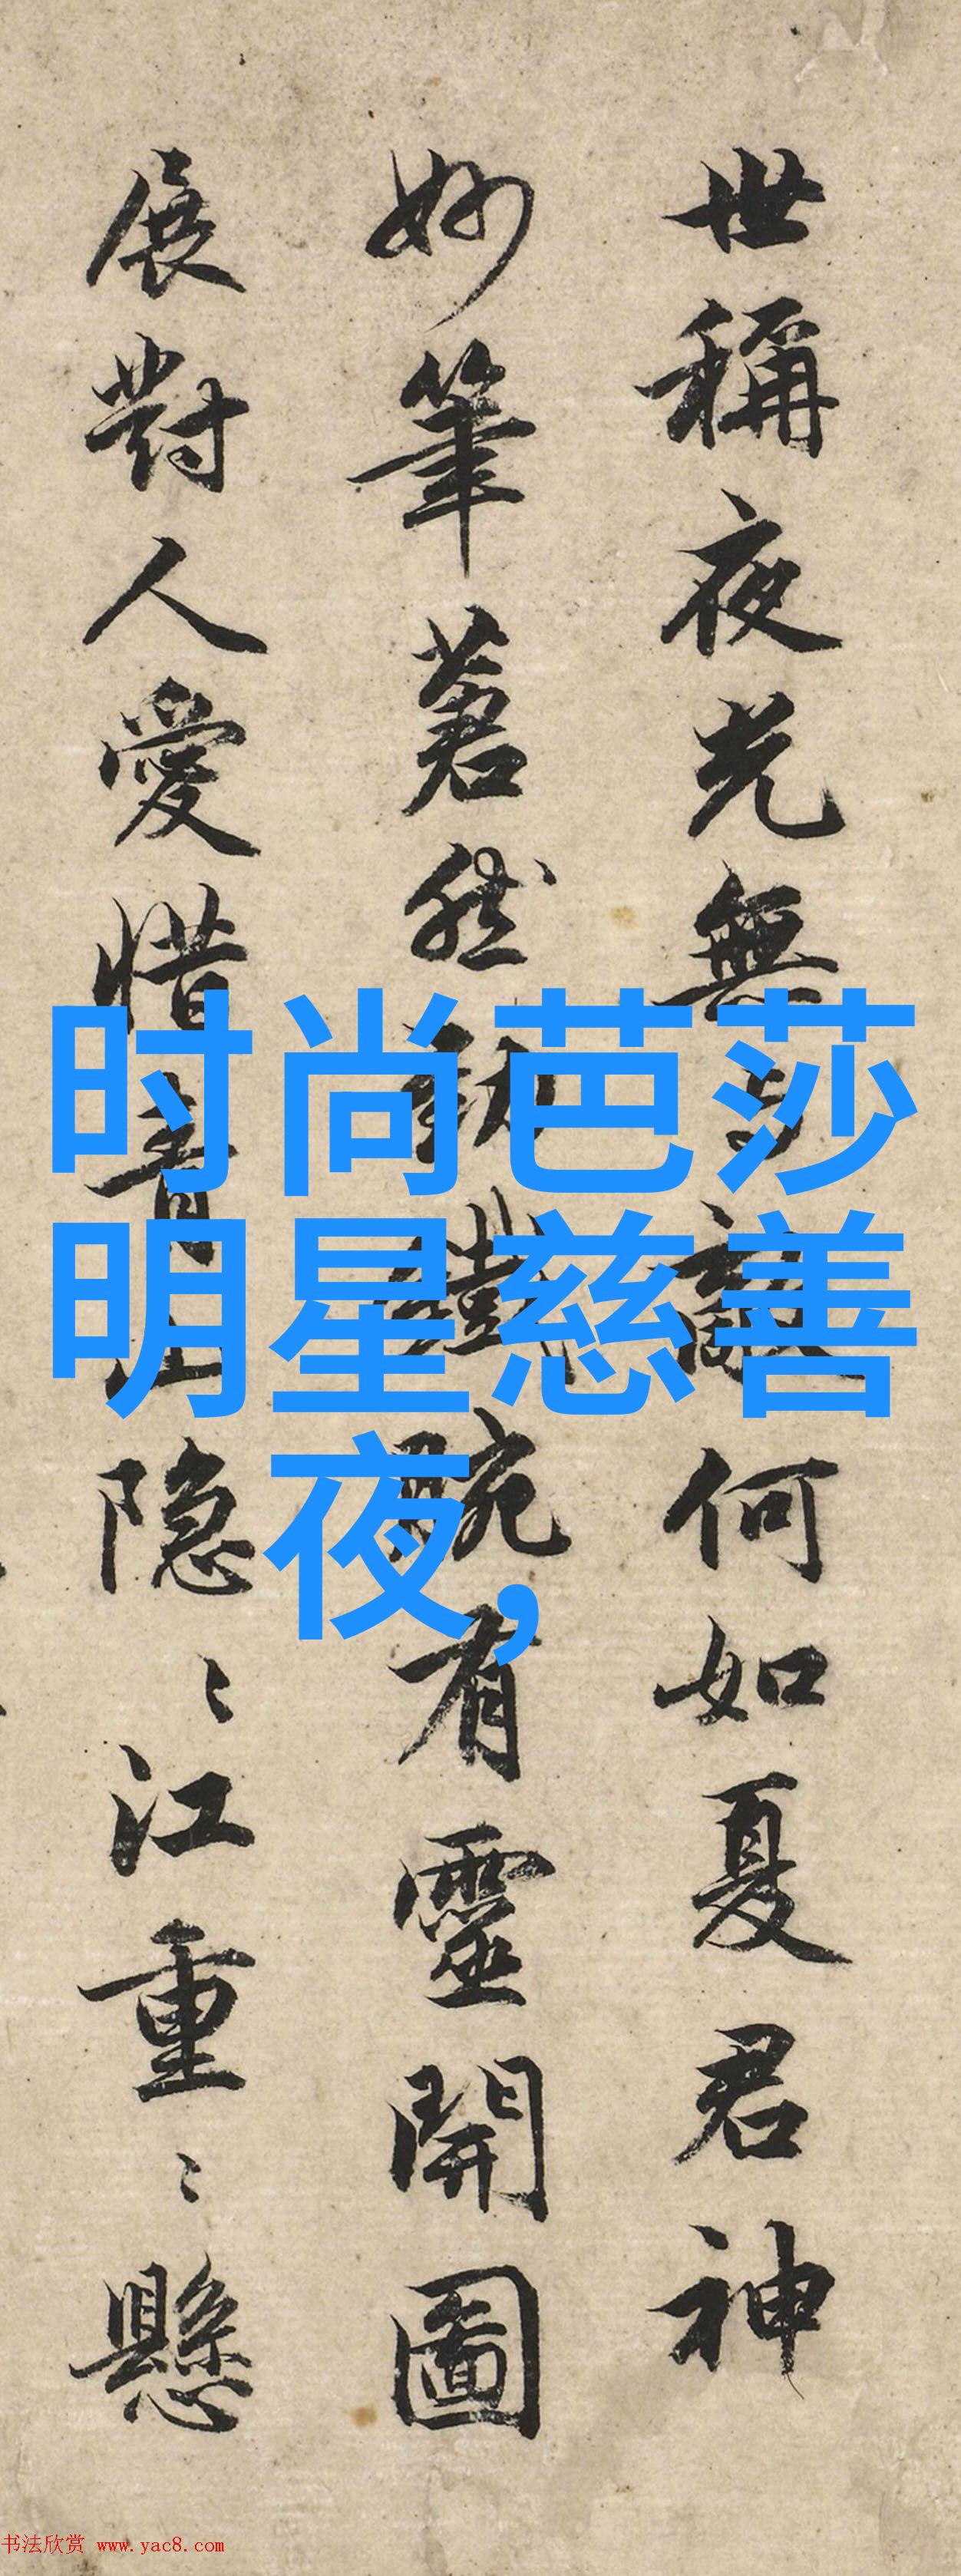 世稱夜光無敵何如夏君神
妙筆然腕有靈開圖
展對人愛惜青山隐〻江重〻懸
时尚芭莎
明星慈善
夜,
书法欣赏 www.yac8.com